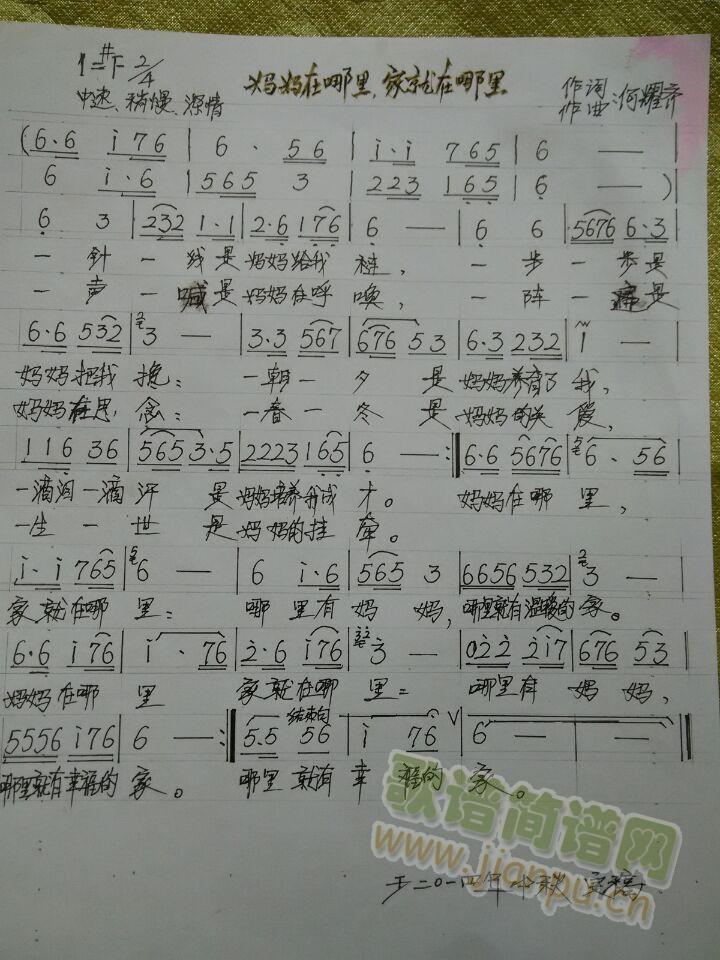 1=#F 2/4
妈妈在哪里,家就在哪里
中速、稍慢、深情
作词
作曲:何耀齐
(6·6 i76 | 6 · 56 | i·i 765 | 6 — |
6 i·6 | 565 3 | 223 165 | 6 — )
6 3 | 232 1·1 | 2·6 176 | 6 — | 6 6 | 5676 6·3 |
一针一线是妈妈给我 缝, 一步一步是
一声一喊是妈妈在呼唤, 一阵一痛是
6·6 532 | 3 — | 3·3 567 | 676 53 | 6·3 232 | i — |
妈妈把我 挽; 一朝一 夕 是 妈妈养育了我,
妈妈在思 念; 一春一 冬 是 妈妈的关 爱,
116 36 | 565 3·5 | 2223 165 | 6 — :| 6·6 5676 | 6·56 |
一滴泪一滴汗 是妈妈培养我成 才。 妈妈在哪 里,
一生一世 是妈妈的挂 牵。
i·i 765 | 6 — | 6 i·6 | 565 3 | 6656 532 | 3 — |
家就在哪 里; 哪 里有 妈 妈,哪里就有温暖的 家。
6·6 i76 | i·76 | 2·6 i76 | 3 — | 022 2i7 | 676 53 |
妈妈在哪 里 家就在哪 里; 哪里有 妈 妈,
结束句
5556 i76 | 6 — :| 5·5 56 | i 76 V | 6 — | — ‖
哪里就有幸福的 家。 哪里 就有 幸 福的 家。
歌谱简谱网
www.jianpu.cn
于二〇一四年中秋 定稿